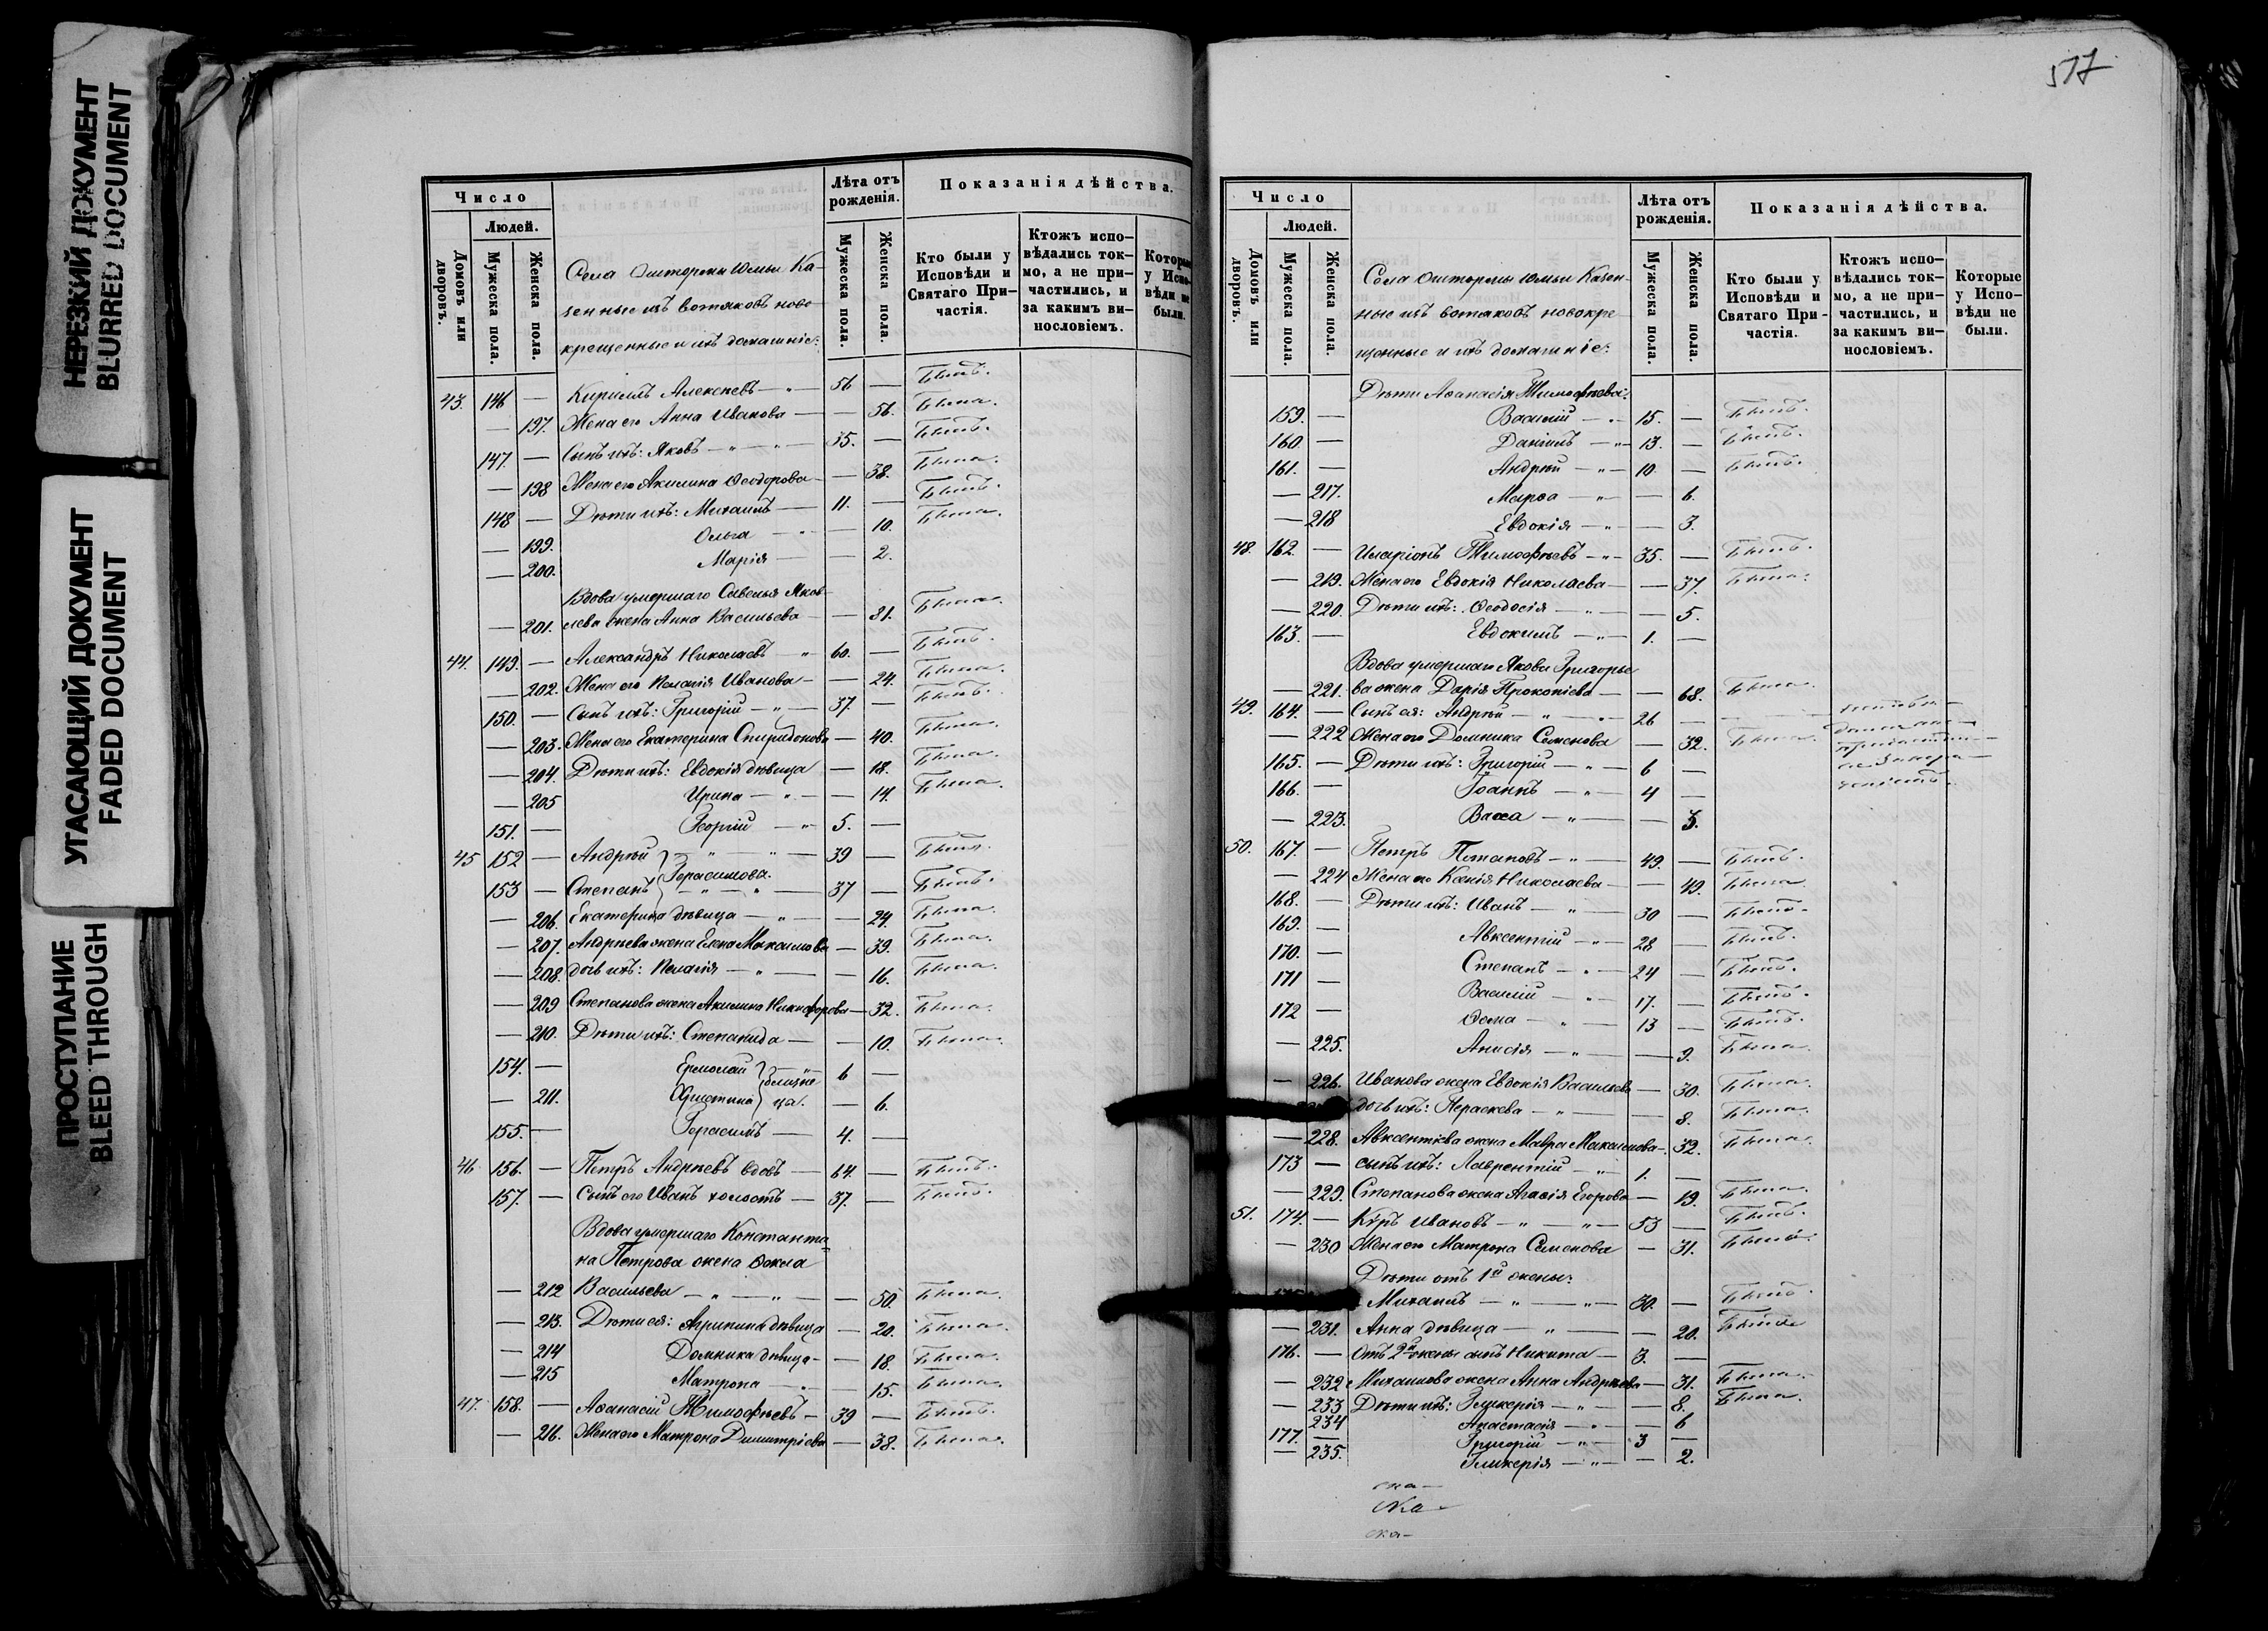 НЕРЕЗКИЙ ДОКУМЕНТ
BLURRED DOCUMENT
УГАСАЮЩИЙ ДОКУМЕНТ
FADED DOCUMENT
ПРОСТУПАНИЕ
BLEED THROUGH
Число
Людей.
Домовъ или дворовъ.
Мужеска пола.
Женска пола.
Села Ошторма Юмьи Ка-
зенные изъ вотяковъ ново-
крещенные и ихъ домашніе:
Лѣта отъ рожденія.
Мужеска пола.
Женска пола.
Показанія дѣйства.
Кто были у Исповѣди и Святаго При-частія.
Ктожъ испо-вѣдались ток-мо, а не при-частились, и за какимъ ви-нословіемъ.
Которые у Испо-вѣди не были.
43. 146 — Кириллъ Алексѣевъ — 56 — Былъ.
— 197. Жена его Анна Иванова — — 56. Была.
147. — Сынъ ихъ: Яковъ — 35. — Былъ.
— 198 Жена его Акилина Ѳеодорова — — 38. Была.
148 — Дѣти ихъ: Михаилъ — 11. — Былъ.
— 199. Ольга — — 10. Была.
— 200. Марія — — 2.
Вдова умершаго Савелья Яков-
— 201. лева жена Анна Васильева — — 31. Была.
44. 149. — Александръ Николаевъ — 60. — Былъ.
— 202. Жена его Пелагія Иванова — — 24. Была.
150. — Сынъ ихъ: Григорій — 37. — Былъ.
— 203. Жена его Екатерина Спиридонова — 40. Была.
— 204. Дѣти ихъ: Евдокія дѣвица — 18. Была.
— 205 Ирина — — 14. Была.
151. — Георгій — 5. —
45 152 — Андрѣй } — 39 — Былъ.
Герасимова.
153 — Степанъ } — 37 — Былъ.
— 206. Екатерина дѣвица — — 24. Была.
— 207. Андрѣева жена Елена Максимова — 39. Была.
— 208. дочь ихъ: Пелагія — — 16. Была.
— 209 Степанова жена Акилина Никифорова — 32. Была.
— 210. Дѣти ихъ: Степанида — — 10. Была.
154. — Ермолай } близне- 6 —
— 211. Христина } ца. — 6.
155. — Герасимъ — 4. —
46 156. — Петръ Андрѣевъ вдовъ — 64. — Былъ.
157. — Сынъ его Иванъ холостъ — 37. — Былъ.
Вдова умершаго Константи-
на Петрова жена Ѳекла
— 212 Васильева — — 50. Была.
— 213. Дѣти ея: Агрипина дѣвица — 20. Была.
— 214 Домника дѣвица — — 18. Была.
— 215 Матрона — — 15. Была.
47. 158. — Аѳанасій Тимофѣевъ — 39 — Былъ.
— 216. Жена его Матрона Димитріева — 38. Была.
517
Число
Людей.
Домовъ или дворовъ.
Мужеска пола.
Женска пола.
Села Ошторма Юмьи Казен-
ные изъ вотяковъ новокре-
щенные и ихъ домашніе:
Лѣта отъ рожденія.
Мужеска пола.
Женска пола.
Показанія дѣйства.
Кто были у Исповѣди и Святаго При-частія.
Ктожъ испо-вѣдались ток-мо, а не при-частились, и за какимъ ви-нословіемъ.
Которые у Испо-вѣди не были.
Дѣти Аѳанасія Тимофѣева:
159. — Василій — 15. — Былъ.
160 — Даніилъ — 13. — Былъ.
161. — Андрѣй — 10. — Былъ.
— 217. Марѳа — — 6.
— 218 Евдокія — — 3.
48. 162. — Иларіонъ Тимофѣевъ — 35. — Былъ.
— 219. Жена его Евдокія Николаева — — 37. Была.
— 220. Дѣти ихъ: Ѳеодосія — — 5.
163. — Евдокимъ — 1. —
Вдова умершаго Якова Григорье-
— 221. ва жена Дарія Прокопіева — — 68. Была.
49. 164. — Сынъ ея: Андрѣй — 26 —
— 222 Жена его Домника Семенова — 32. Была.
165. — Дѣти ихъ: Григорій — 6 —
166. — Іоаннъ — 4 —
— 223. Васса — — 3.
50. 167. — Петръ Потаповъ — 49. — Былъ.
— 224 Жена его Ксенія Николаева — — 49. Была.
168. — Дѣти ихъ: Иванъ — 30 — Былъ.
169. — Авксентій — 28 — Былъ.
170. — Степанъ — 24 — Былъ.
171 — Василій — 17. — Былъ.
172 — Ѳома — 13 — Былъ.
— 225. Анисія — — 9. Была.
— 226. Иванова жена Евдокія Васильева — 30. Была.
дочь ихъ: Параскева — — 8. Была.
— 228. Авксентіева жена Мавра Максимова — 32. Была.
173 — сынъ ихъ: Лаврентій — 1. —
— 229. Степанова жена Агаѳія Егорова — 19. Была.
51. 174. — Кѵръ Ивановъ — 53 — Былъ.
— 230 Жена его Матрона Семенова — 31. Была.
Дѣти отъ 1й жены:
Михаилъ — 30. — Былъ.
— 231. Анна дѣвица — — 20. Была
176. — Отъ 2й жены сынъ Никита — 3. —
— 232 Михаилова жена Анна Андрѣева — 31. Была.
— 233 Дѣти ихъ: Гликерія — — 8. Была.
234 Анастасія — — 6
177. — Григорій — 3 —
— 235. Гликерія — — 2.